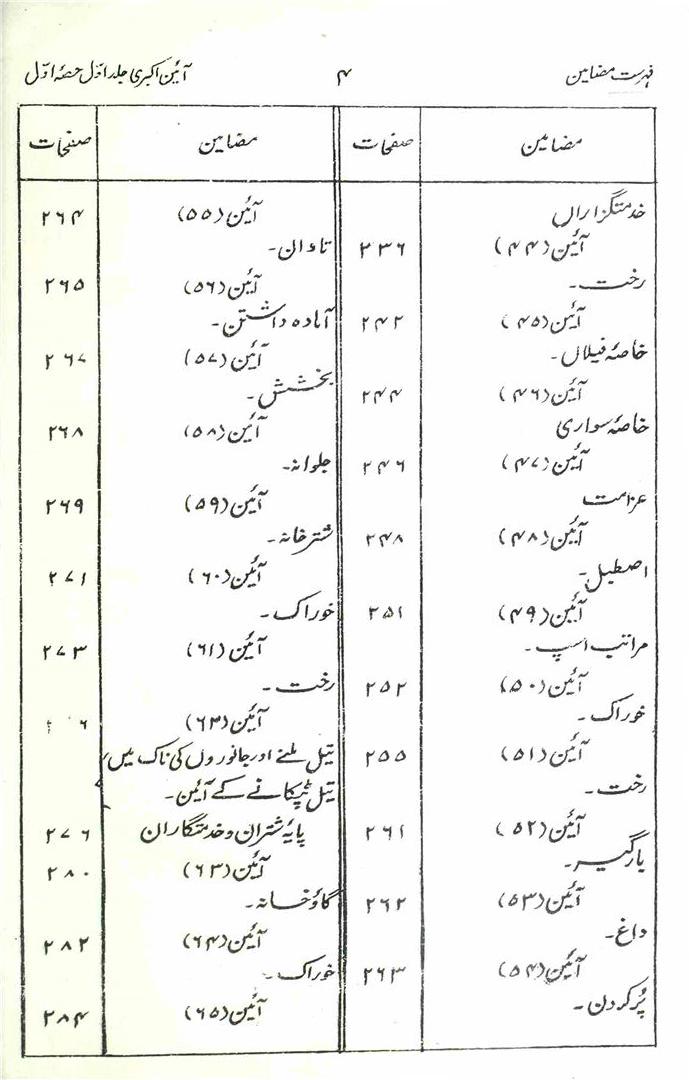 فہرست مضامین
۴
آئین اکبری جلد اوّل حصۂ اوّل
مضامین
صفحات
خدمتگزاراں
آئین (۴۴) ۲۳۶
رخت۔
آئین (۴۵) ۲۴۲
خاصۂ فیلاں۔
آئین (۴۶) ۲۴۴
خاصۂ سواری
آئین (۴۷) ۲۴۶
عزامت
آئین (۴۸) ۲۴۸
اصطبل۔
آئین (۴۹) ۲۵۱
مراتب اسپ۔
آئین (۵۰) ۲۵۲
خوراک۔
آئین (۵۱) ۲۵۵
رخت۔
آئین (۵۲) ۲۶۱
یارگیر۔
آئین (۵۳) ۲۶۲
داغ۔
آئین (۵۴) ۲۶۳
پُر کردن۔
مضامین
صفحات
آئین (۵۵) ۲۶۴
تاوان۔
آئین (۵۶) ۲۶۵
آمادہ داشتن۔
آئین (۵۷) ۲۶۷
بخشش۔
آئین (۵۸) ۲۶۸
جلوانہ۔
آئین (۵۹) ۲۶۹
شترخانہ۔
آئین (۶۰) ۲۷۱
خوراک۔
آئین (۶۱) ۲۷۳
رخت۔
آئین (۶۳)
تیل ملنے اور جانوروں کی ناک میں
تیل ٹپکانے کے آئین۔
پایۂ شتران و خدمتگاران ۲۷۶
آئین (۶۳) ۲۸۰
گاؤخانہ۔
آئین (۶۴) ۲۸۲
خوراک۔
آئین (۶۵) ۲۸۴